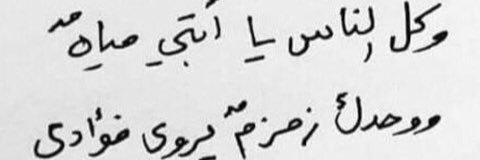 وكل الناس يا أبتي مياهٌ
ووحدك زمزمٌ يروى فؤادى